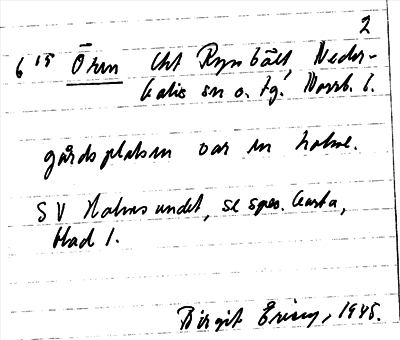 2
6 15 Örn Cht Rynbäck, Neder-
kalix sn o. tg. Norrb. l.
gårdsplatsen var en holme.
SV Holmsundet, se spec. karta,
blad 1.
Birgit Ering, 1945.